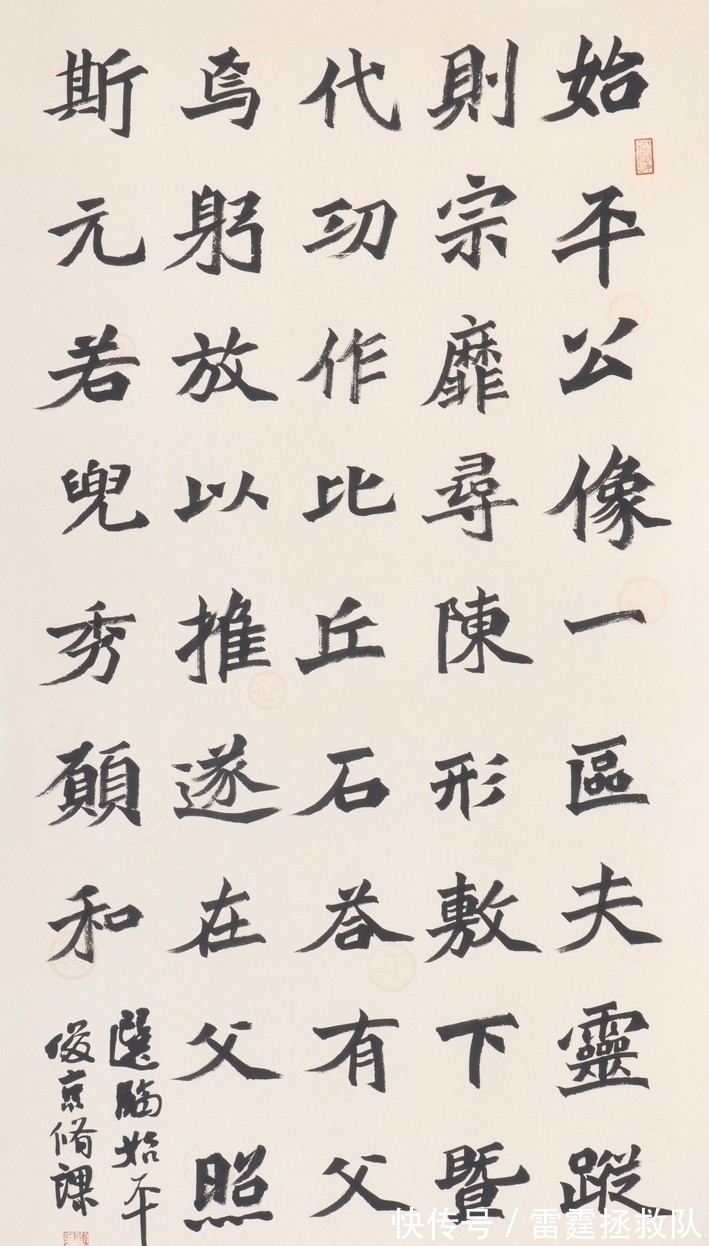 始平公像一區夫靈蹤
則宗靡尋陳形敷下暨
代功作比丘石荅有父
焉躬放以推遂在父照
斯元若兜秀願和
選臨始平
俊京脩課
快传号/雷霆拯救队